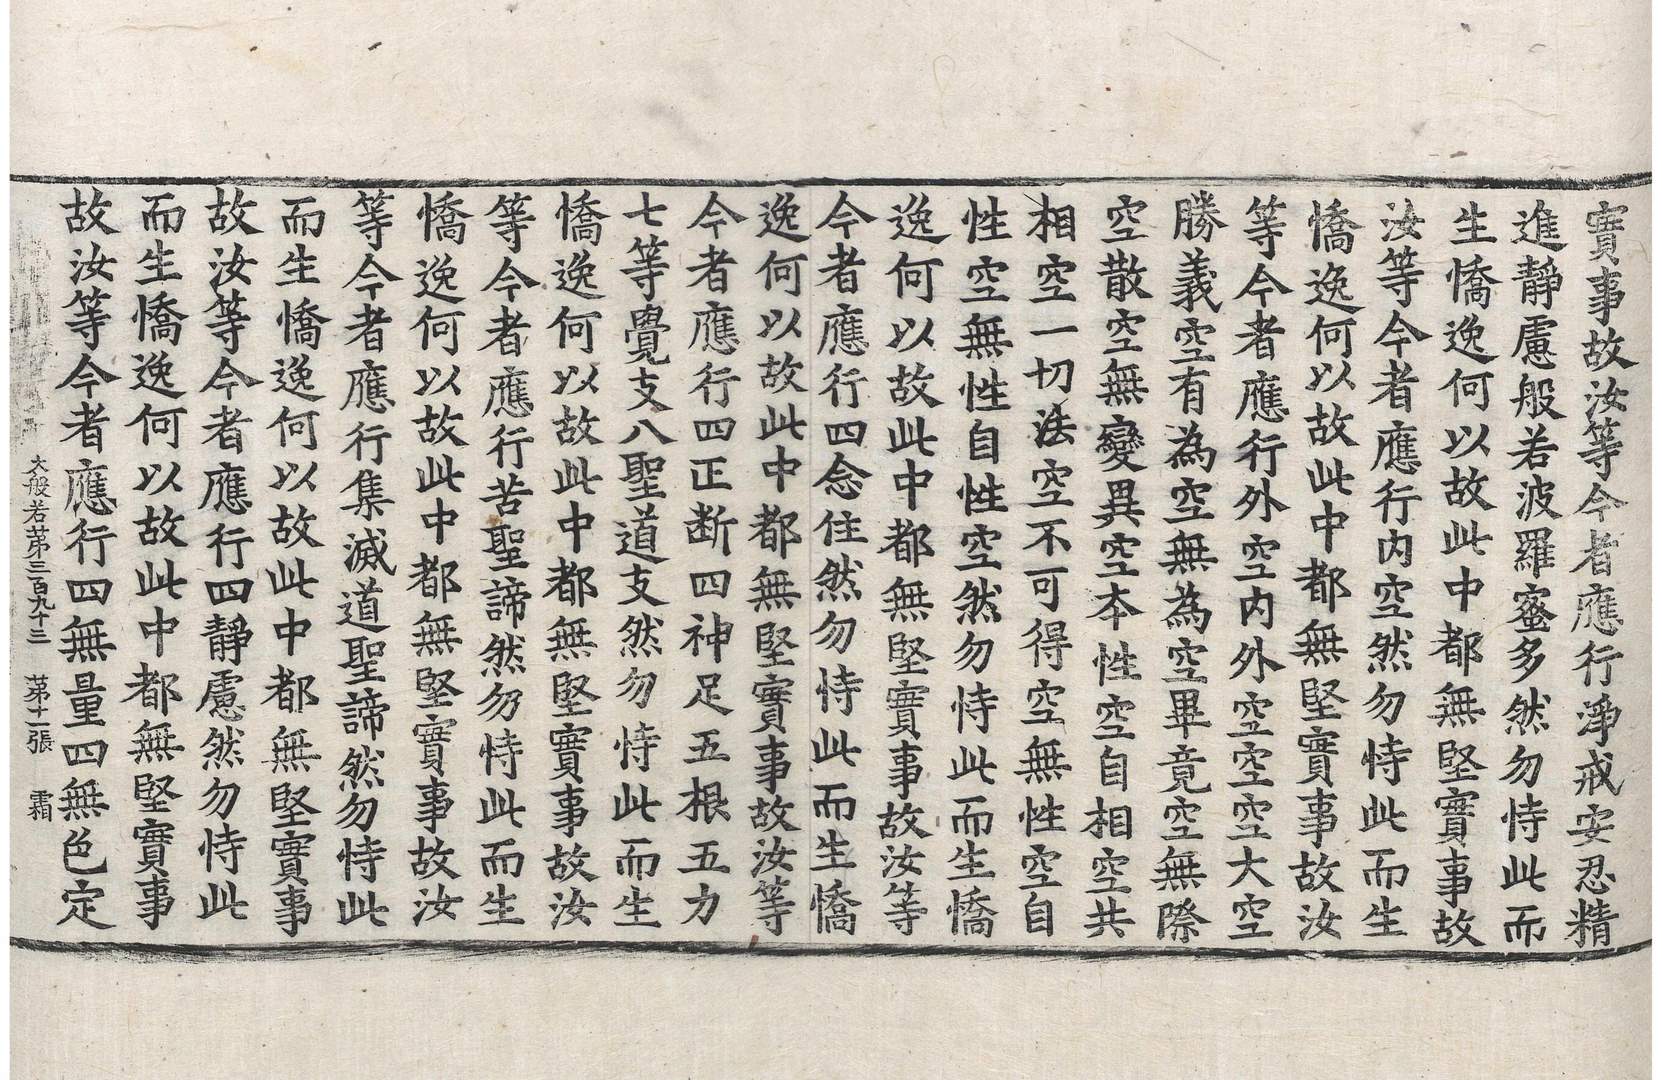 實事故汝等今者應行淨戒安忍精
進靜慮般若波羅蜜多然勿恃此而
生憍逸何以故此中都無堅實事故
汝等今者應行内空然勿恃此而生
憍逸何以故此中都無堅實事故汝
等今者應行外空内外空空空大空
勝義空有為空無為空畢竟空無際
空散空無變異空夲性空自相空共
相空一切法空不可得空無性空自
性空無性自性空然勿恃此而生憍
逸何以故此中都無堅實事故汝等
今者應行四念住然勿恃此而生憍
逸何以故此中都無堅實事故汝等
今者應行四正断四神足五根五力
七等覺支八聖道支然勿恃此而生
憍逸何以故此中都無堅實事故汝
等今者應行苦聖諦然勿恃此而生
憍逸何以故此中都無堅實事故汝
等今者應行集滅道聖諦然勿恃此
而生憍逸何以故此中都無堅實事
故汝等今者應行四靜慮然勿恃此
而生憍逸何以故此中都無堅實事
故汝等今者應行四無量四無色定
大般若苐三百九十三 苐十一張 霜